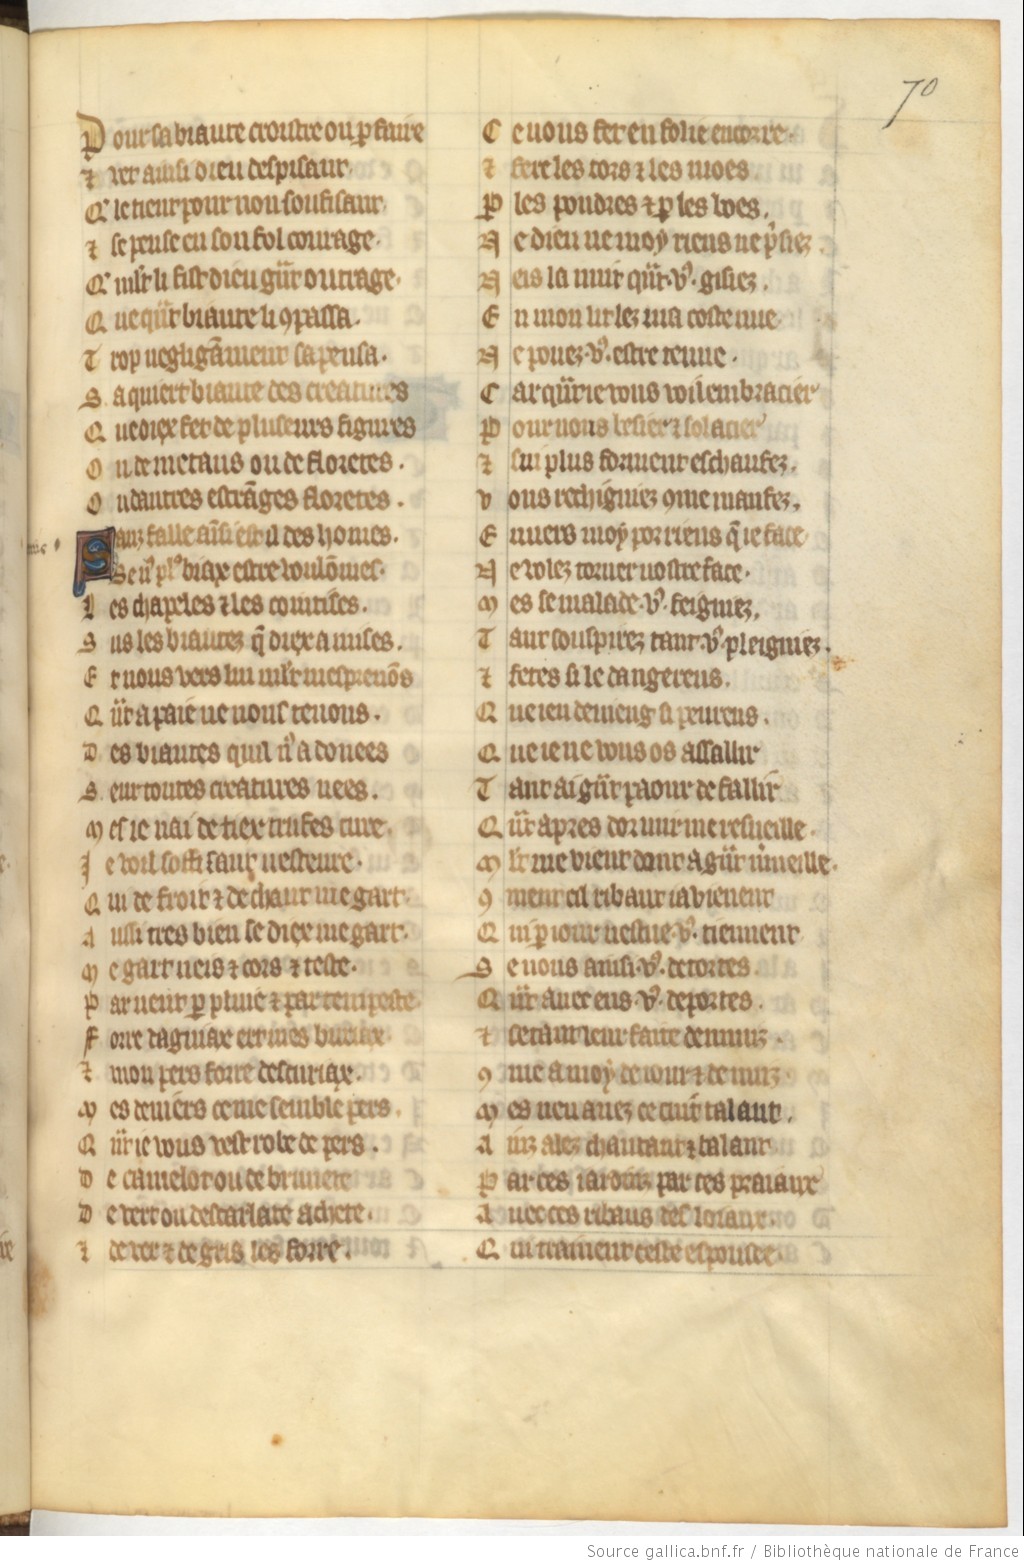 70
Pour sa biaute croistre ou p̱ faire
⁊ ver ainsi dieu despisant
Qͥ le tient pour non soufisant
⁊ se pense en son fol courage
Qͥ mľt li fist dieu gnͣt outrage
Que qn̄t biaute li ꝯpassa.
Trop negligāment sapensa.
Sa quiert biaute des creatures
Que diex fet de pluseurs figures
Ou de metaus ou de floretes.
Ou dautres estrāges floretes.
Sanz faille aīsi est il des homes.
Se nͥ plꝰ biax estre voulōmes.
Les chapeles ⁊ les cointises.
Sus les biautez q̄ diex a mises.
Et nous vers lui mľt mesprenōs
Qn̄t a paie ne nous tenons.
Des biautes quil nꝰ a donees
Seur toutes creatures nees.
Mes ie nai de tiex trufes cure
Je voil soffisant vesteure.
Qui de froit ⁊ de chaut me gart.
Aussi tres bien se diex me gart.
Me gart mes ⁊ cors ⁊ teste.
Par vent p̱ pluie ⁊ par tempeste
Forre daigniax cer mes buriax
⁊ mon pers forre descuriax.
Mes deniers ce me semble pers.
Qn̄t ie vous vest robe de pers.
De camelot ou de brunete
De vert ou descarlate achete.
⁊ de ver ⁊ de gris les forre.
Ce vous fet en folie encorre
⁊ fere les tors ⁊ les moes
P̱ les poudres ⁊ p̱ les boes.
Ne dieu ne moy riens ne p̱siez
Neis la nuit qn̄t .vꝰ. gisiez.
En mon lit lez ma coste nue
Ne pouez .vꝰ. estre tenue.
Car qn̄t ie vous voil embracier
Pour vous besier ⁊ solacier
⁊ sui plus forment eschaufez.
Vous rechigniez ꝯme maufez.
Envers moy por riens q̄ ie face
Ne volez torner vostre face.
Mes se malade .vꝰ. feigniez,
Tant souspirez tant .vꝰ. pleigniez.
⁊ fetes si le dangereus.
Que ien devieng si peureus.
Que ie ne vous os assallir
Tant ai gnͣt paour de fallir
Qn̄t apres dormir me resueille.
Mľt me vient dont a gnͣt mͥveille.
ꝯment cil ribaut ia vienent
Qui p̱ iour vestue .vꝰ. tiennent
Se vous ainsi .vꝰ. detortes.
Qn̄t avec eus .vꝰ. deportes.
⁊ se tant leur faite dennuiz.
ꝯme a moy de iour ⁊ de nuiz
Mes nen avez ce cuit talant.
Ainz alez chantant ⁊ balant
Par ces iardins par ces praiaux
Avec ces ribaus desloiaux
Qui trainent ceste espousee